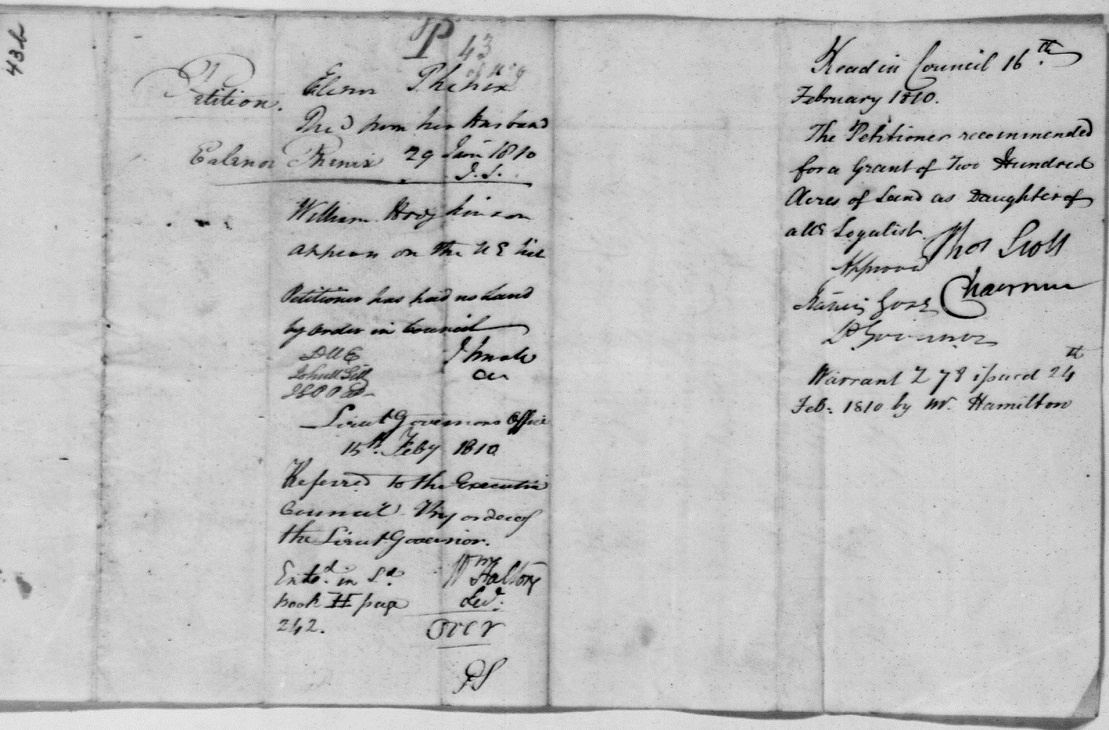 43b
Petition.
Ealenor Phenix
P 43
Elenor Phenix
Rec'd from her Husband
29 Jan 1810
J.S.
William Hodgkinson
appears on the U E List
Petitioner has had no Land
by order in Council
J Small
Lieut Governors Office
15th Feby 1810
Referred to the Executive
Council By order of
the Lieut Governor.
Wm Halton
Secy
Entd. in Ld
book H page
242.
Over
PS
Read in Council 16th
February 1810.
The Petitioner recommended
for a Grant of Two Hundred
Acres of Land as Daughter of
a UE Loyalist.
Thos Scott
Chairman
Approved
Francis Gore
Lt Governor
Warrant 278 issued 24th
Feb: 1810 by Mr. Hamilton